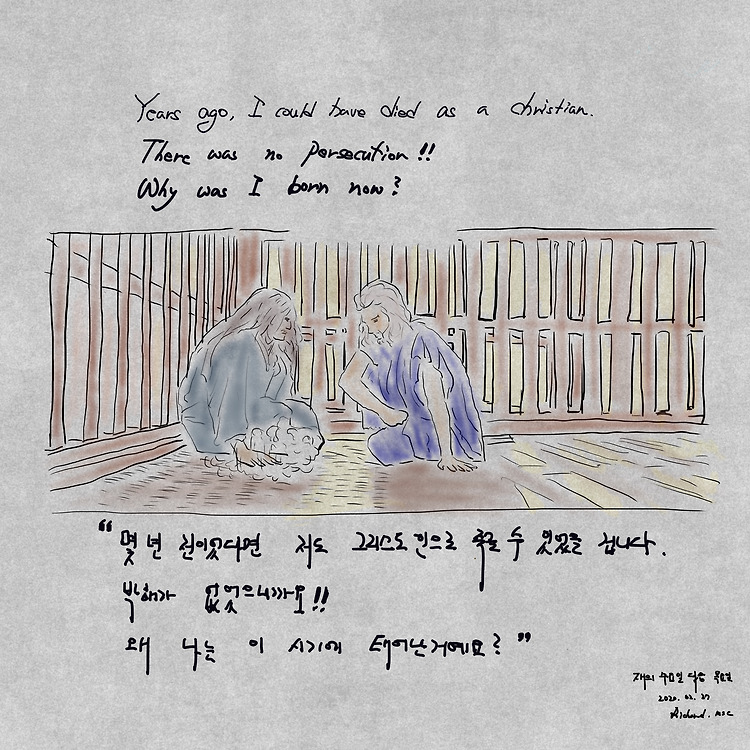 Years ago, I could have died as a christian.
There was no persecution!!
Why was I born now?
“몇 년 전이었다면 저도 그리스도인으로 죽을 수 있었을 겁니다.
박해가 없었으니까요!!
왜 나는 이 시기에 태어난거예요?”
재의 수요일 다음 목요일
2020. 02. 27
Richard. MSC